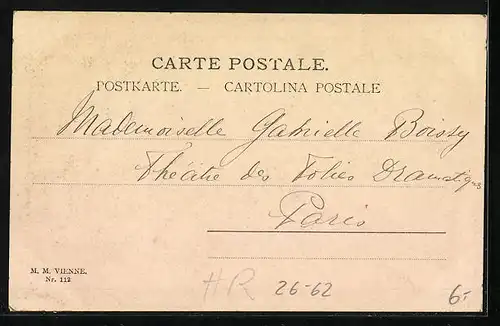 CARTE POSTALE.
POSTKARTE. — CARTOLINA POSTALE
Mademoiselle Gabrielle Boissy
Théâtre des Folies Dramatiques
Paris
M. M. VIENNE.
Nr. 112
HR 26-62
6.-